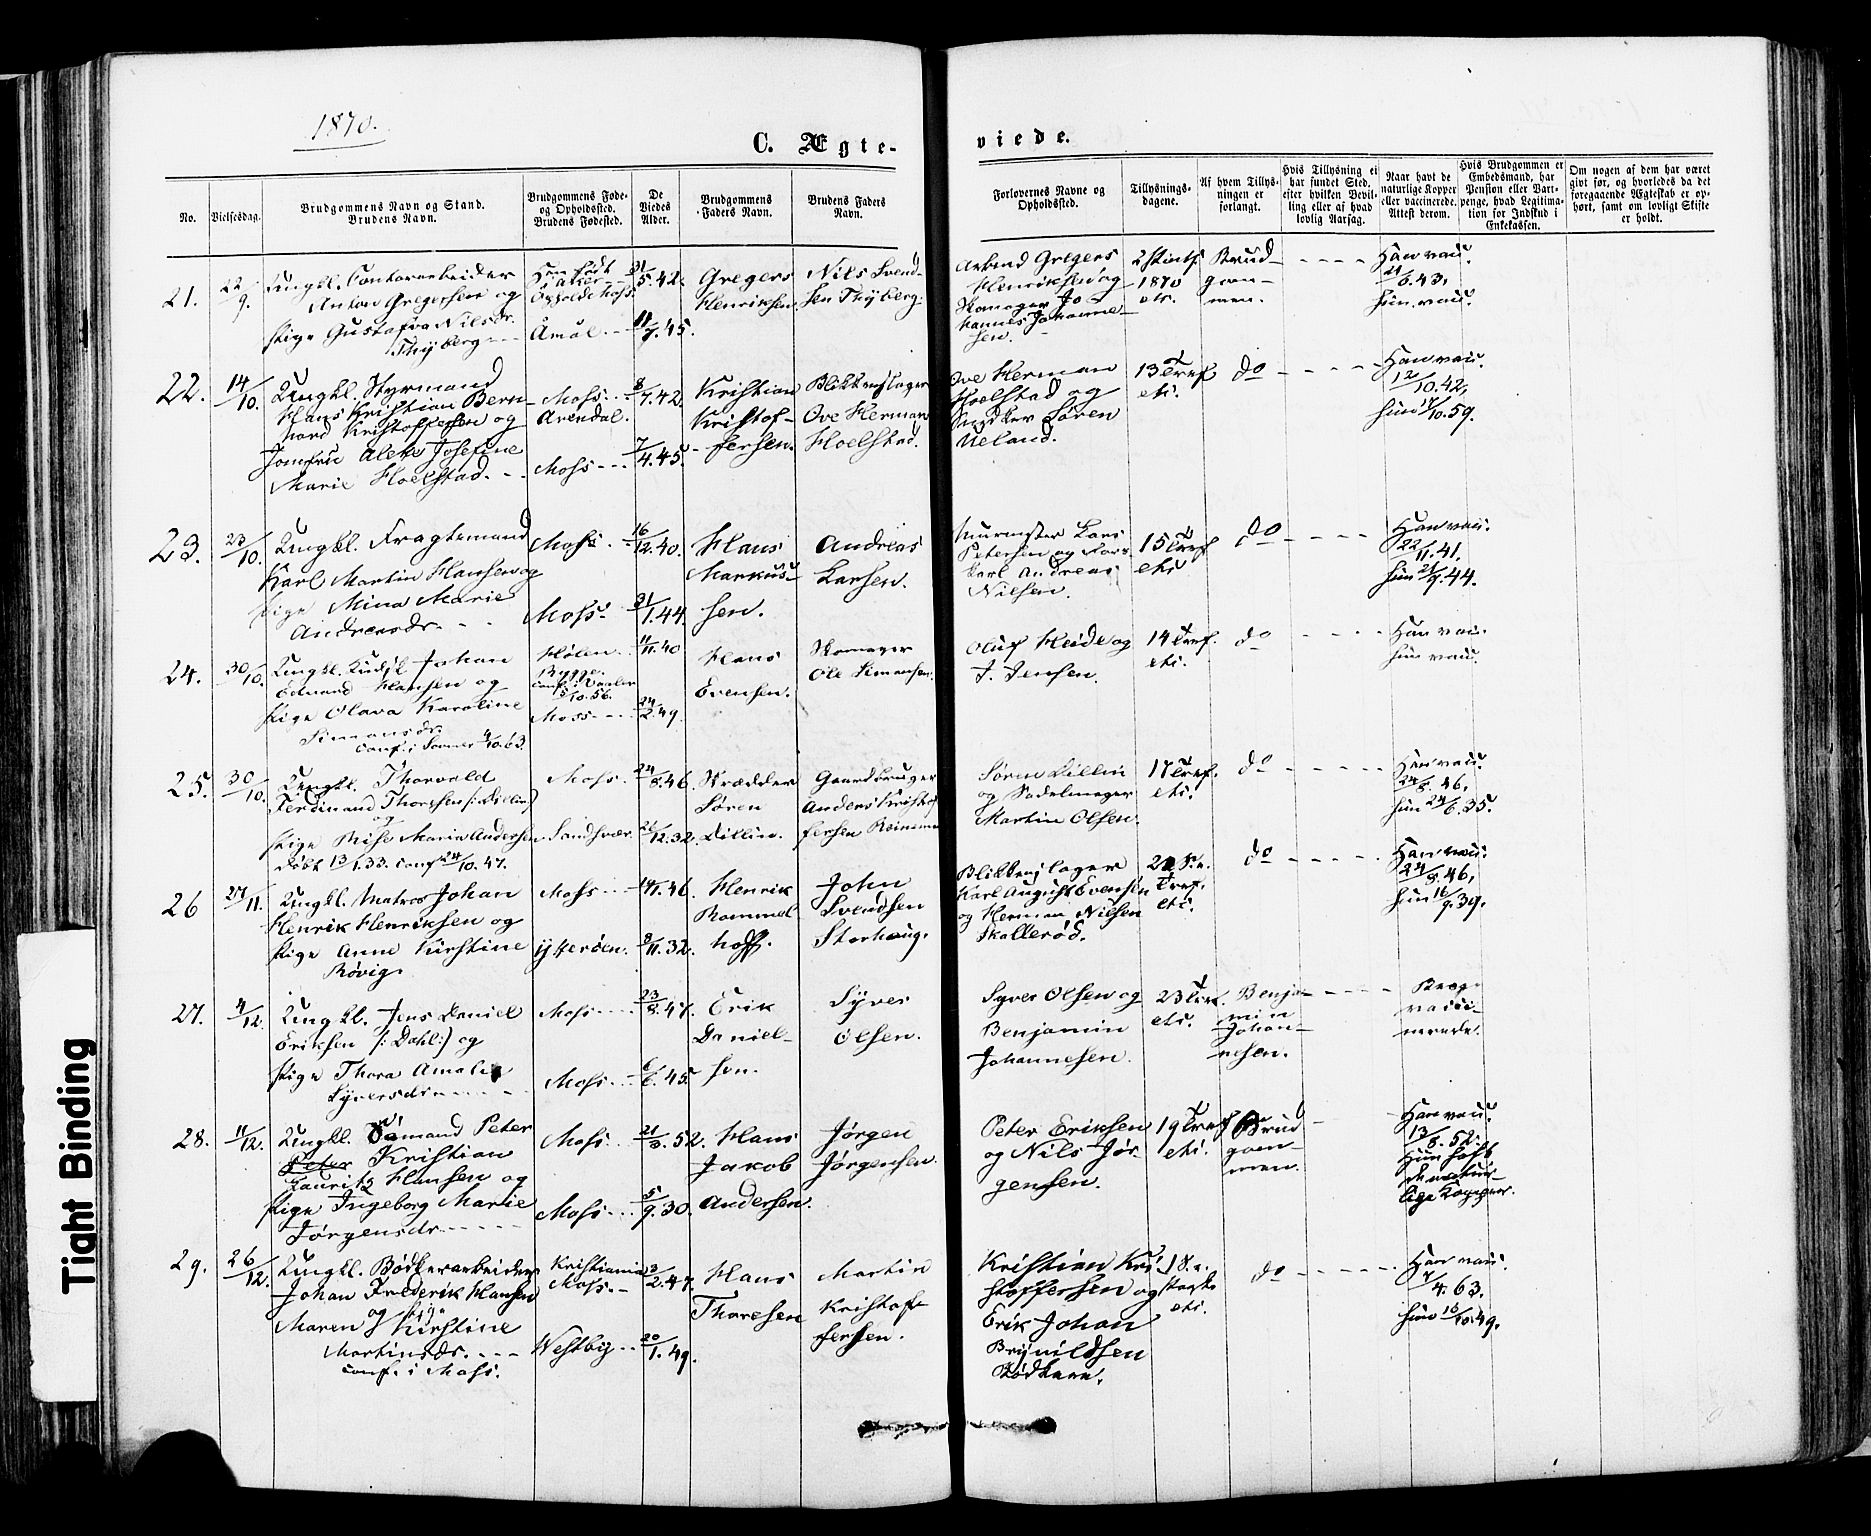 1870.
C. Ægte-
viede.
No.
Vielsesdag.
Brudgommens Navn og Stand.
Brudens Navn.
Brudgommens Føde-
og Opholdssted.
Brudens Fødested.
De
Viedes
Alder.
Brudgommens
Faders Navn.
Brudens Faders
Navn.
Forlovernes Navne og
Opholdssted.
Tillysnings-
dagene.
Af hvem Tillys-
ningen er
forlangt.
Hvis Tillysning ei
har fundet Sted,
efter hvilken Bevil-
ling eller af hvad
lovlig Aarsag.
Naar havt de
naturlige Kopper
eller vaccinerede.
Attest derom.
Hvis Brudgommen er
Embedsmand, har
Pension eller Vart-
penge, hvad Legitima-
tion for Indskud i
Enkekassen.
Om nogen af dem har været
givt før, og hvorledes da det
foregaaende Ægteskab er op-
hørt, samt om lovligt Skifte
er holdt.
21.
22/9.
Ungkl. Contorarbeider
Anton Gregersen og
Pige Gustafva Nilsdr.
Thyberg
Opholdt Moss.
Åmål.
31/5.42.
11/7.45.
Gregers
Henriksen.
Nils Svend-
sen Thyberg.
Arbmd Gregers
Henriksen og
Skomager Jo-
hannes Johanne-
sen.
1870
etc.
Brud-
gom-
men.
Han vacc.
6.43.
hun vacc.
22.
14/10.
Ungkl. Styrmand
Hans Kristian Bern-
hard Kristoffersen og
Jomfru Aleke Josefine
Marie Hoelstad.
Moss.
Arendal.
Moss
8/7.42.
7/4.45.
Kristian
Kristof-
fersen.
Blikkenslager
Ove Herman
Hoelstad.
Ove Herman
Hoelstad og
Snedker Søren
Ueland.
13 Tref.
etc.
do
Han vacc.
12/10.42,
hun 14/10.59.
23.
23/10.
Ungkl. Fragtemand
Karl Martin Hansen og
Pige Mina Marie
Andreasdr.
Moss.
Moss.
16/12.40.
31/1.44.
Hans
Markus-
sen.
Andreas
Larsen.
Murmester Lars
Petersen og
Karl Andreas
Nilsen.
15 Tref
etc
do
Han vacc.
22/11.41.
hun 21/9.44.
24.
30/10.
Ungkl. Johan
Edvard Hansen og
Pige Olava Karoline
Simonsdr.
conf. i 10.63.
Hølen.
Bygge.
conf. i Vaaler
5/10.56.
Moss
11/11.40
24/2.49.
Hans
Evensen.
Skomager
Ole Simensen.
Oluf Heide og
J. Jensen.
14 Tref.
etc.
do
Han vacc.
hun vacc.
25.
30/10.
Ungkl. Thorvald
Ferdinand
og
Pige Marie Andersen
døbt 13/1.33. conf 24/10.47.
Moss.
Sandsvær.
24/8.46.
26/12.32.
Skrædder
Søren
Dillin.
Gaardbruger
Anders Kristof-
fersen
Søren Dillin
og Sadelmager
Martin Olsen.
17 Tref.
etc.
do
Han vacc.
24/8.46,
hun 24/6.35.
26
27/11.
Ungkl. Matros Johan
Henrik Henriksen og
Pige Anne Kirstine
Røvig.
Moss
Ytterøen.
46.
8/11.32.
Henrik
Rommel-
hoff.
John
Svendsen
Storhaug.
Blikkenslager
Karl August Evensen
og Herman Nilsen
Skallerød.
Tref.
etc.
do
Han vacc.
24/8.46,
hun 16/9.39.
27.
4/12.
Ungkl. Jens Daniel
Eriksen (: Dahl:) og
Pige Thora Amalie
Syversdr
Moss
Moss.
23/8.47.
6/6.45.
Erik
Daniel-
sen.
Syver
Olsen.
Syver Olsen og
Benjamin
Johannesen.
23 Tref.
etc.
Benja-
min
Johan-
nesen.
Begge
vacci-
nerede.
28.
11/12.
Ungkl. Sømand Peter
Peter Kristian
Lauritz Hansen og
Pige Ingeborg Marie
Jørgensdr.
Moss.
Moss.
21/3.52.
5/9.30.
Hans
Jakob
Andersen.
Jørgen
Jørgensen.
Peter Eriksen
og Nils Jør-
gensen.
19 Tref
etc.
Brud
gom-
men.
Han vacc.
13/8.52.
Hun haft
de natur-
lige Kopper.
29.
26/12.
Ungkl. Bødkerarbeider
Johan Frederik Hansen
og Pige
Maren Kirstine
Martinsdr.
conf. i Moss.
Kristiania
Moss.
Westby
3/2.47.
20/1.49.
Hans
Thoresen
Martin
Kristof-
fersen.
Kristian Kri-
stoffersen og
Erik Johan
Brynildsen
Bødkere.
18.
etc.
do
Han vacc.
4.63.
hun 16/10.49.
Tight Binding